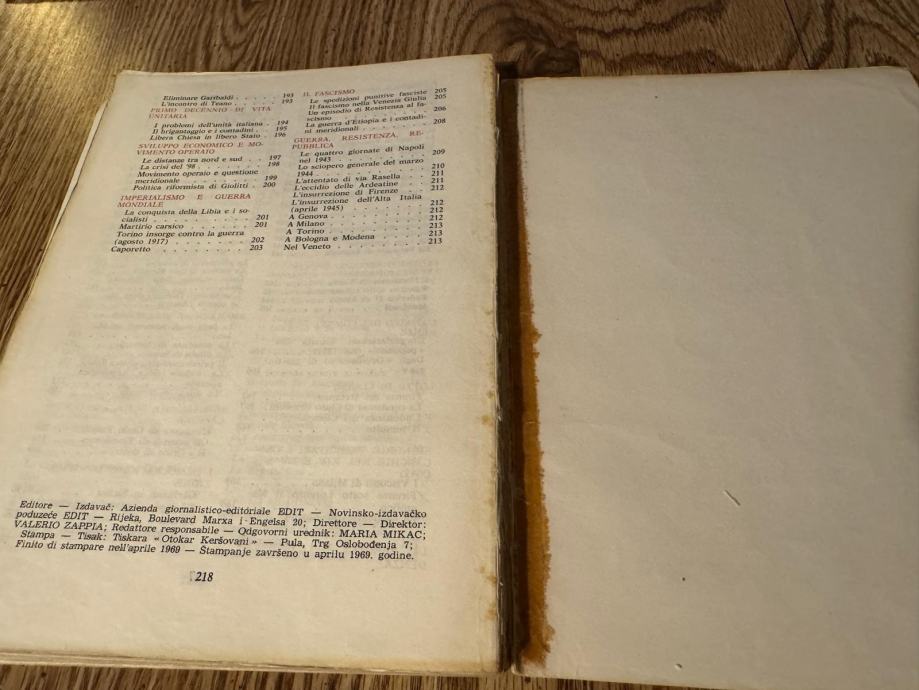 Eliminare Garibaldi . . . . . 193
L'incontro di Teano . . . . . 193
PRIMO DECENNIO DI VITA
UNITARIA
I problemi dell'unità italiana . 194
Il brigantaggio e i contadini . 195
Libera Chiesa in libero Stato . 196
SVILUPPO ECONOMICO E MO-
VIMENTO OPERAIO
Le distanze tra nord e sud . . 197
La crisi del '98 . . . . . . 198
Movimento operaio e questione
meridionale . . . . . . . . 199
Politica riformista di Giolitti . 200
IMPERIALISMO E GUERRA
MONDIALE
La conquista della Libia e i so-
cialisti . . . . . . . . . 201
Martirio carsico . . . . . . 201
Torino insorge contro la guerra
(agosto 1917) . . . . . . . 202
Caporetto . . . . . . . . 203
IL FASCISMO
Le spedizioni punitive fasciste 205
Il fascismo nella Venezia Giulia 205
Un episodio di Resistenza al fa-
scismo . . . . . . . . . 206
La guerra d'Etiopia e i contadi-
ni meridionali . . . . . . . 208
GUERRA, RESISTENZA, RE-
PUBBLICA
Le quattro giornate di Napoli
nel 1943 . . . . . . . . 209
Lo sciopero generale del marzo
1944 . . . . . . . . . . 210
L'attentato di via Rasella . . 211
L'eccidio delle Ardeatine . . . 211
L'insurrezione di Firenze . . . 212
L'insurrezione dell'Alta Italia
(aprile 1945) . . . . . . . 212
A Genova . . . . . . . . 212
A Milano . . . . . . . . 213
A Torino . . . . . . . . 213
A Bologna e Modena . . . . 213
Nel Veneto . . . . . . . . 213
Editore — Izdavač: Azienda giornalistico-editoriale EDIT — Novinsko-izdavačko
poduzeće EDIT — Rijeka, Boulevard Marxa i Engelsa 20; Direttore — Direktor:
VALERIO ZAPPIA; Redattore responsabile — Odgovorni urednik: MARIA MIKAC;
Stampa — Tisak: Tiskara «Otokar Keršovani» — Pula, Trg Oslobođenja 7;
Finito di stampare nell'aprile 1969 — Štampanje završeno u aprilu 1969. godine.
218